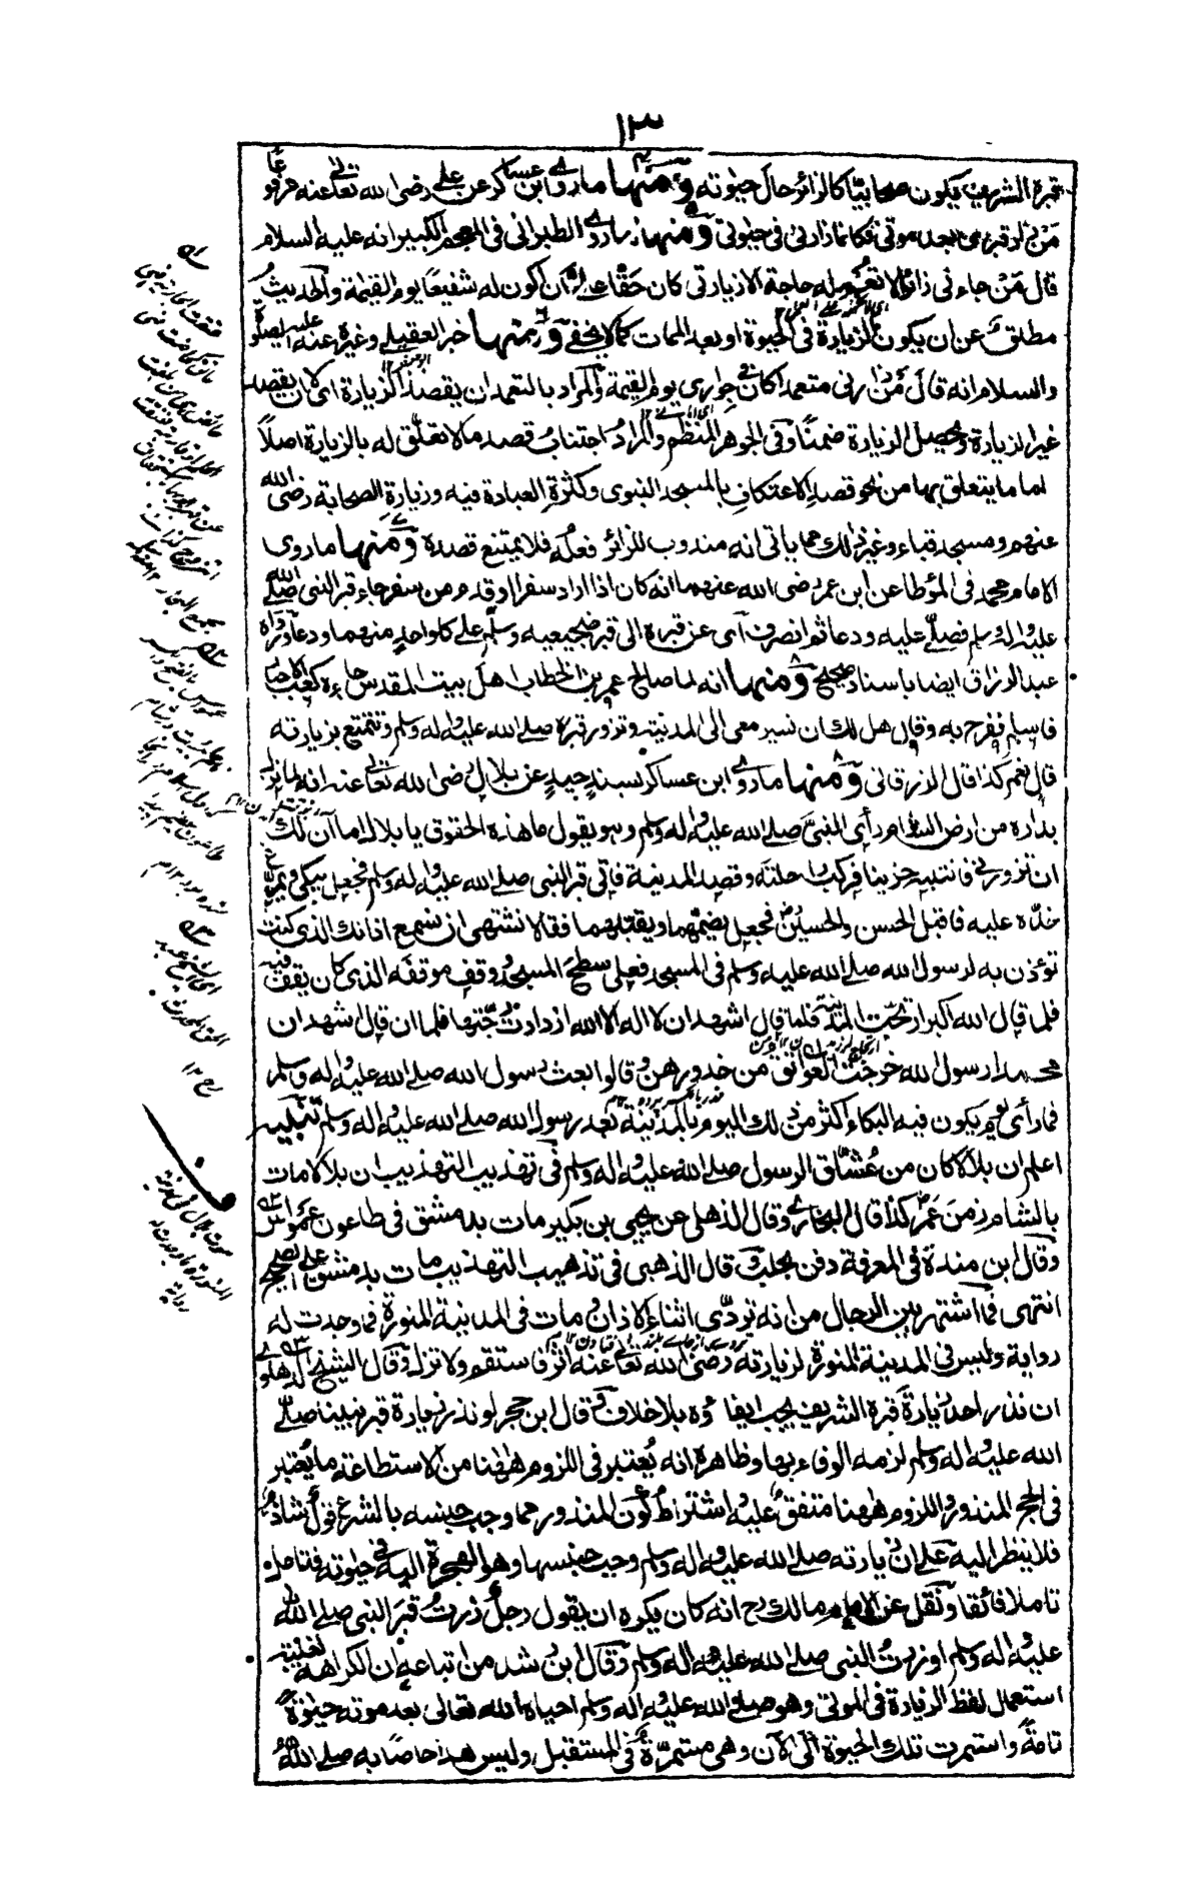 ١٣
قبره الشريف يكون صحابيّا كالزائر حال حيوته ومنها ما روى ابن عساكر عن علي رضى الله تعالى عنه مرفوعا
من زار قبرى بعد موتى فكانما زارنى فى حيوتى ومنها ما روى الطبرانى فى المعجم الكبير انه عليه السلام
قال مَنْ جاءنى زائرا لا تعمله حاجة الا زيارتى كان حقّا علىّ ان اكون له شفيعًا يوم القيٰمة والحديثُ
مطلقٌ عن ان يكون الزيارة فى الحيوة او بعد الممات كما لا يخفى ومنها خبر العقيلى وغيره عنه عليه الصلوة
والسلام انه قال مَنْ زارنى متعمدا كان فى جوارى يوم القيمة والمراد بالتعمد ان يقصد الزيارة اى لا ان يقصد
غير الزيارة ويحصيل الزيارة ضمنًا وفى الجوهر المنظم والمرادُ اجتنابُ قصد ما لا تعلّق له بالزيارة اصلاً
اما ما يتعلق بها من نحو قصد الاعتكاف بالمسجد النبوى وكثرة العبادة فيه وزيارة الصحابة رضى الله
عنهم ومسجد قباء وغير ذلك مما ياتى انه مندوب للزائر فعلُه فلا يمتنع قصده ومنها ما روى
الامام محمد فى المؤطا عن ابن عمر رضى الله عنهما انه كان اذا اراد سفرا او قدم من سفر جاء قبر النبى صلى الله
عليه واله وسلم فصلّى عليه ودعا ثم انصرف اى عن قبره الى قبر ضجيعيه وسلّم على كل واحدٍ منهما ودعا ورواه
عبد الرزاق ايضا باسناد صحيح ومنها انه لما صالح عمر بن الخطاب اهل بيت المقدس جاءه كعب الاحبار
فاسلم ففرح به وقال هل لك ان تسير معى الى المدينة وتزور قبره صلى الله عليه واله وسلم وتتمتع بزيارته
قال نعم كذا قال الزرقانى ومنها ما روى ابن عساكر بسندٍ جيدٍ عن بلال رضى الله تعالى عنه انه لما نزل
بداره من ارض الشام رأى النبىَّ صلى الله عليه واله وسلم وهو يقول ما هذه الحقوق يا بلال اما آن لك
ان تزورنى فانتبه حزينا فركب راحلته وقصد المدينة فاتى قبر النبى صلى الله عليه واله وسلم فجعل يبكى ويمرّغ
خدّه عليه فاقبل الحسن والحسين فجعل يضمّهما ويقبّلهما فقالا نشتهى ان نسمع اذانك الذى كنت
تؤذن به لرسول الله صلى الله عليه وسلم فى المسجد فعلى سطح المسجد ووقف موقفه الذى كان يقف فيه
فلما قال الله اكبر ارتجّت المدينة فلما قال اشهد ان لا اله الا الله ازدادت رجّتها فلما ان قال اشهد ان
محمدا رسول الله خرجت العواتق من خدورهن وقالوا بعث رسول الله صلى الله عليه واله وسلم
فما رأى يوم يكون فيه البكاء اكثر من ذلك اليوم بالمدينة بعد رسول الله صلى الله عليه واله وسلم تنبيه
اعلم ان بلالا كان من عُشّاق الرسول صلى الله عليه واله وسلم فى تهذيب التهذيب ان بلالا مات
بالشام زمَنَ عمر كذا قال البخارى وقال الذهلى عن يحيى بن بكير مات بدمشق فى طاعون عمواس
وقال ابن مندة فى المعرفة دفن بحلب قال الذهبى فى تذهيب التهذيب مات بدمشق على الصحيح
انتهى فما اشتهر بين الرجال من انه توذّى اثناء الاذان ومات فى المدينة المنورة فما وجدت له
رواية وليس فى المدينة المنورة لزيارته رضى الله تعالى عنه اثر فاستقم ولا تزل وقال الشيخ الدهلوى
ان نذر احد زيارة قبره الشريف يجب ايفاؤه بلا خلاف وقال ابن حجر لو نذر زيارة قبر نبينا صلى
الله عليه واله وسلم لزمه الوفاء بها وظاهره انه يُعتبر فى اللزوم ههنا من الاستطاعة ما يُعتبر
فى الحج المنذور واللزوم ههنا متفق عليه واشتراط كون المنذور مما وجب جنسه بالشرع قول شاذ
فلا ينظر اليه على ان زيارته صلى الله عليه واله وسلم وجب جنسها وهو الهجرة اليه فى حيوته فتامل
تاملا فائقا ونقل عن الامام مالك رح انه كان يكره ان يقول رجلٌ زرتُ قبرَ النبى صلى الله
عليه واله وسلم او زرتُ النبى صلى الله عليه واله وسلم وقال ابن رشد من اتباعه ان الكراهة لغلبة
استعمال لفظ الزيارة فى الموتى وهو صلى الله عليه واله وسلم احياه الله تعالى بعد موته حيٰوةً
تامةً واستمرت تلك الحيوة الى الآن وهى مستمرّة فى المستقبل وليس هذا خاصًا به صلى اللهُ